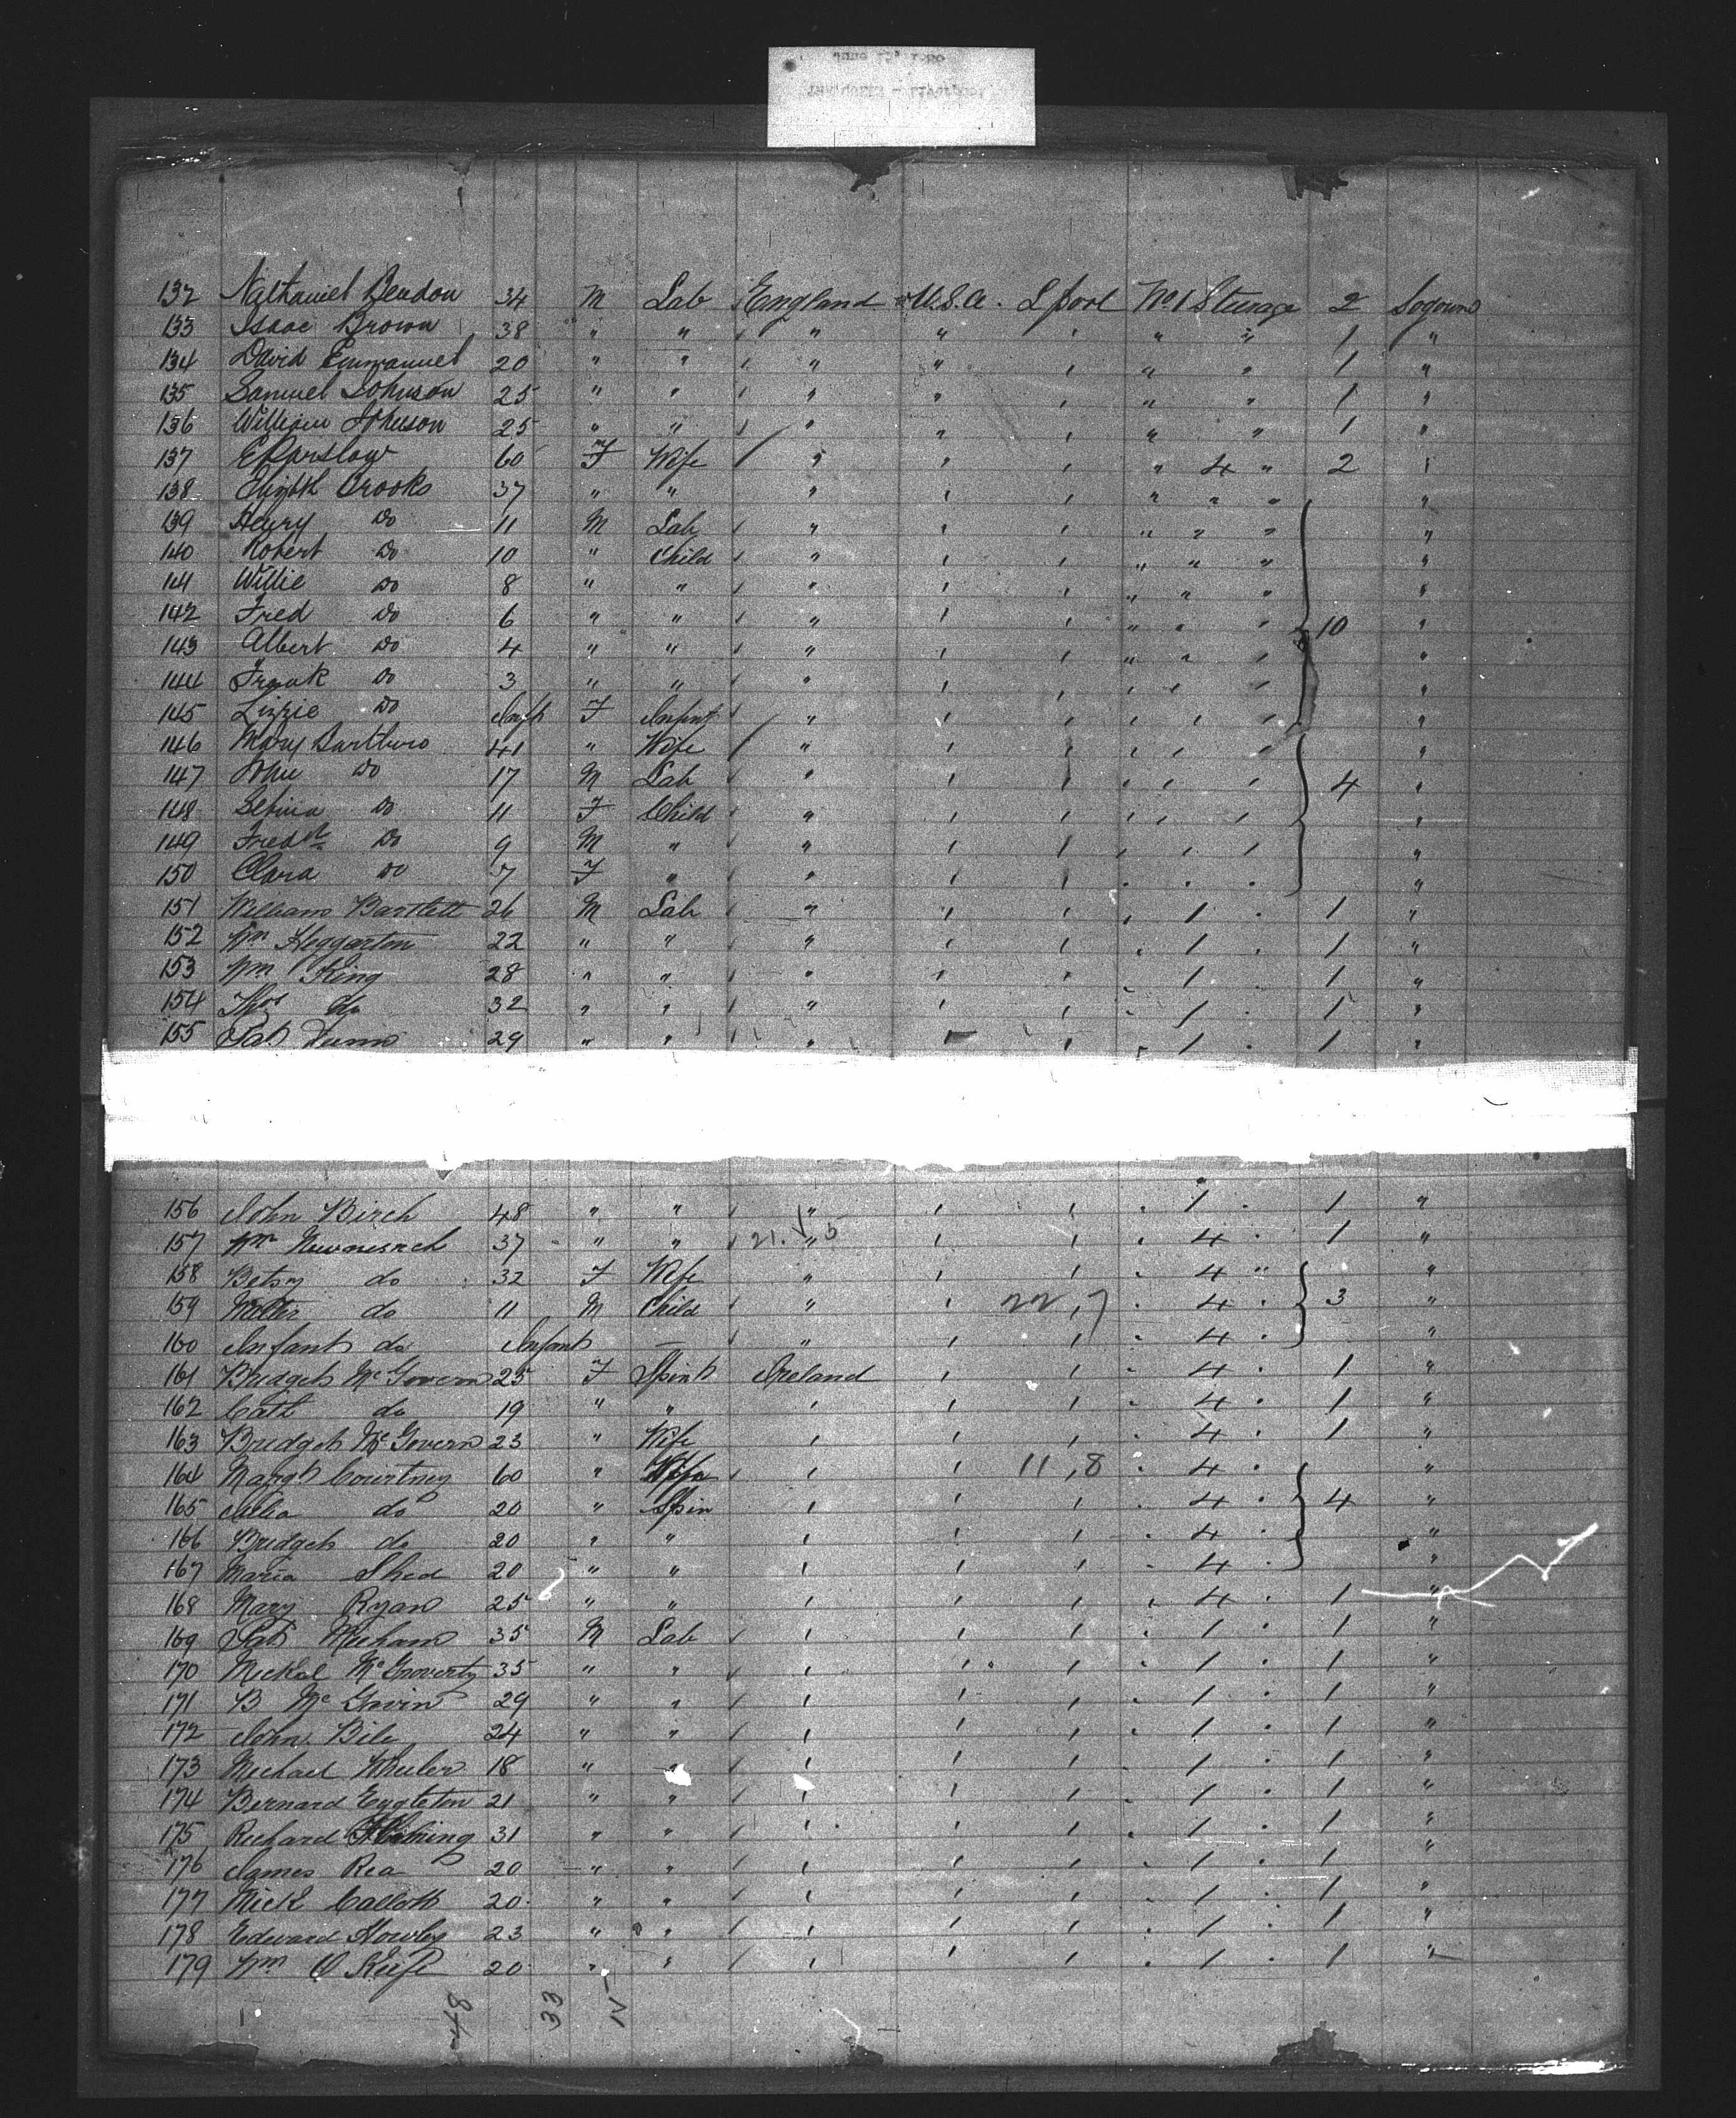 132 Nathaniel Bendon 34 M Lab England U.S.A. L'pool No 1 Sterage 2 Sogourn
133 Isaac Brown 38 " " " " " " " 1 "
134 David Emmanuel 20 " " " " " " " 1 "
135 Samuel Johnson 25 " " " " " " " 1 "
136 William Johnson 25 " " " " " " " 1 "
137 60 F Wife " " " " 4 " 2 "
138 Crooks 37 " " " " " " " " "
139 Henry Do 11 M Lab " " " " " " "
140 Robert Do 10 " Child " " " " " " "
141 Willie Do 8 " " " " " " " " "
142 Fred Do 6 " " " " " " " " 10 "
143 Albert Do 4 " " " " " " " " "
144 Frank Do 3 " " " " " " " " "
145 Lizzie Do Inft F Infant " " " " " " "
146 Mary 41 " Wife " " " " " " "
147 John Do 17 M Lab " " " " " " 4 "
148 Selina Do 11 F Child " " " " " " "
149 Fredk Do 9 M " " " " " " " "
150 Clara Do 7 F " " " " " " " "
151 William Bartlett 26 M Lab " " " " 1 " 1 "
152 Wm Heggarton 22 " " " " " " 1 " 1 "
153 Wm King 28 " " " " " " 1 " 1 "
154 Thos do 32 " " " " " " 1 " 1 "
155 Pat 29 " " " " " " 1 " 1 "
156 John Birch 48 " " " " " " 1 " 1 "
157 Wm 37 " " 21. " 5 " " " 4 " 1 "
158 Betsy do 32 F Wife " " " " 4 " "
159 do 11 M Child " " 22, 7 " 4 " 3 "
160 Infant do Infant — " " " " 4 " "
161 Bridget McGovern 25 F Spint Ireland " " " 4 " 1 "
162 Cath do 19 " " " " " " 4 " 1 "
163 Bridget McGovern 23 " Wife " " " " 4 " 1 "
164 Margt Courtney 60 " Wife " " 11, 8 " 4 " "
165 Julia do 20 " Spin " " " " 4 " 4 "
166 Bridget do 20 " " " " " " 4 " "
167 Maria Shed 20 " " " " " " 4 " "
168 Mary Ryan 25 " " " " " " 4 " 1 "
169 Pat Meehan 35 M Lab " " " " 1 " 1 "
170 Mickal 35 " " " " " " 1 " 1 "
171 B McGavin 29 " " " " " " 1 " 1 "
172 John 24 " " " " " " 1 " 1 "
173 Michael Wheeler 18 " " " " " " 1 " 1 "
174 Bernard Eggleton 21 " " " " " " 1 " 1 "
175 Richard 31 " " " " " " 1 " 1 "
176 James Rea 20 " " " " " " 1 " 1 "
177 Mick 20 " " " " " " 1 " 1 "
178 Edward Howley 23 " " " " " " 1 " 1 "
179 Wm O Keefe 20 " " " " " " 1 " 1 "
48 33